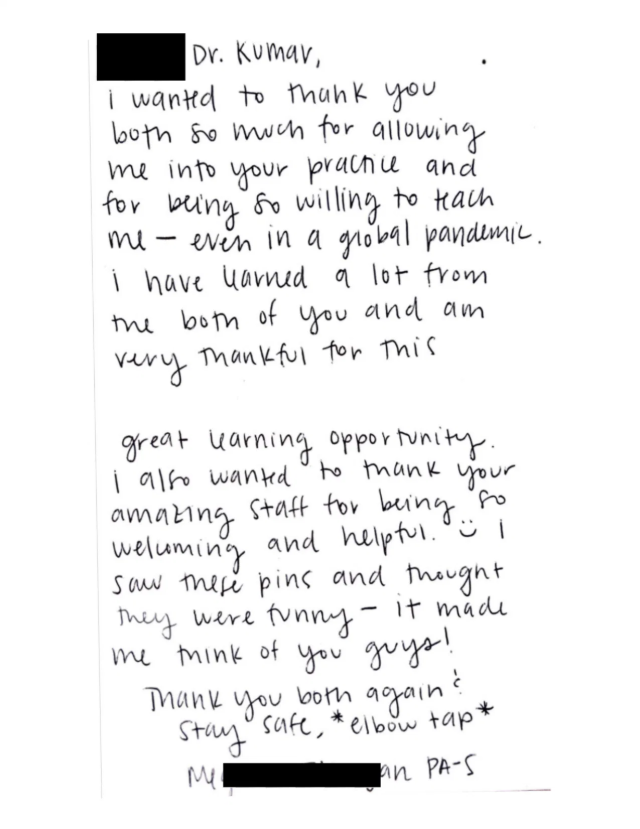 Dr. Kumar,
i wanted to thank you
both so much for allowing
me into your practice and
for being so willing to teach
me - even in a global pandemic.
i have learned a lot from
the both of you and am
very thankful for this
great learning opportunity.
i also wanted to thank your
amazing staff for being so
welcoming and helpful. i
saw these pins and thought
they were funny - it made
me think of you guys!
Thank you both again &
stay safe, *elbow tap*
PA-S